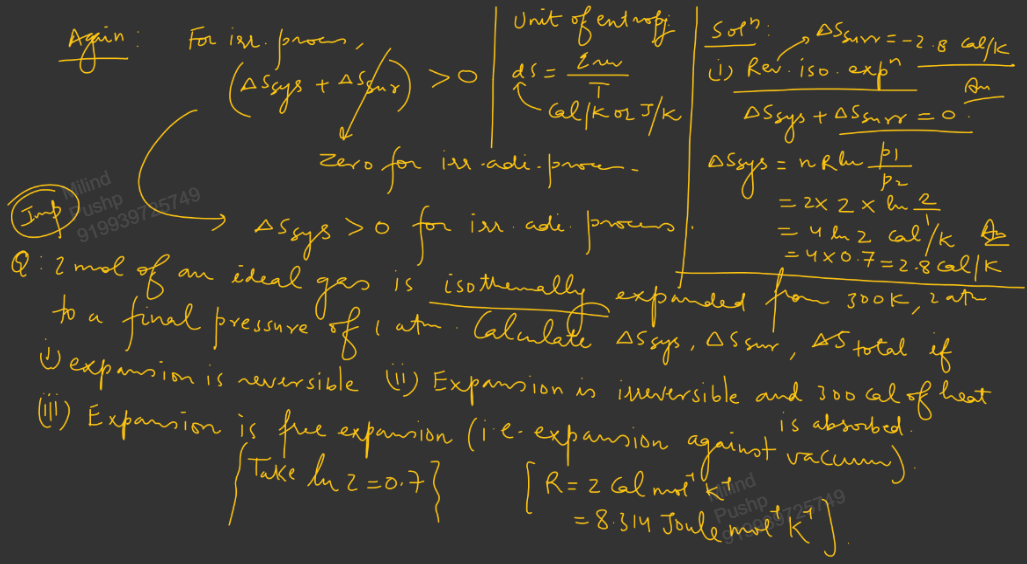 Again: For irr. process,
(ΔSsys + ΔSsurr) > 0
Zero for irr. adi. process
Imp
ΔSsys > 0 for irr. adi. process.
Unit of entropy
dS = qrev / T
Cal/K or J/K
Solⁿ: ΔSsurr = -2.8 Cal/K
(i) Rev. iso. expⁿ Ans
ΔSsys + ΔSsurr = 0.
ΔSsys = nR ln p1/p2
= 2 x 2 x ln 2/1
= 4 ln 2 Cal/K Ans
= 4 x 0.7 = 2.8 Cal/K
Q: 2 mol of an ideal gas is isothermally expanded from 300K, 2 atm
to a final pressure of 1 atm. Calculate ΔSsys, ΔSsurr, ΔStotal if
i) expansion is reversible (ii) Expansion is irreversible and 300 Cal of heat
is absorbed.
(iii) Expansion is free expansion (i.e. expansion against vacuum).
{Take ln 2 = 0.7}
[R = 2 Cal mol⁻¹ K⁻¹
= 8.314 Joule mol⁻¹ K⁻¹].
Milind
Pushp
919939725749
Milind
Pushp
919939725749